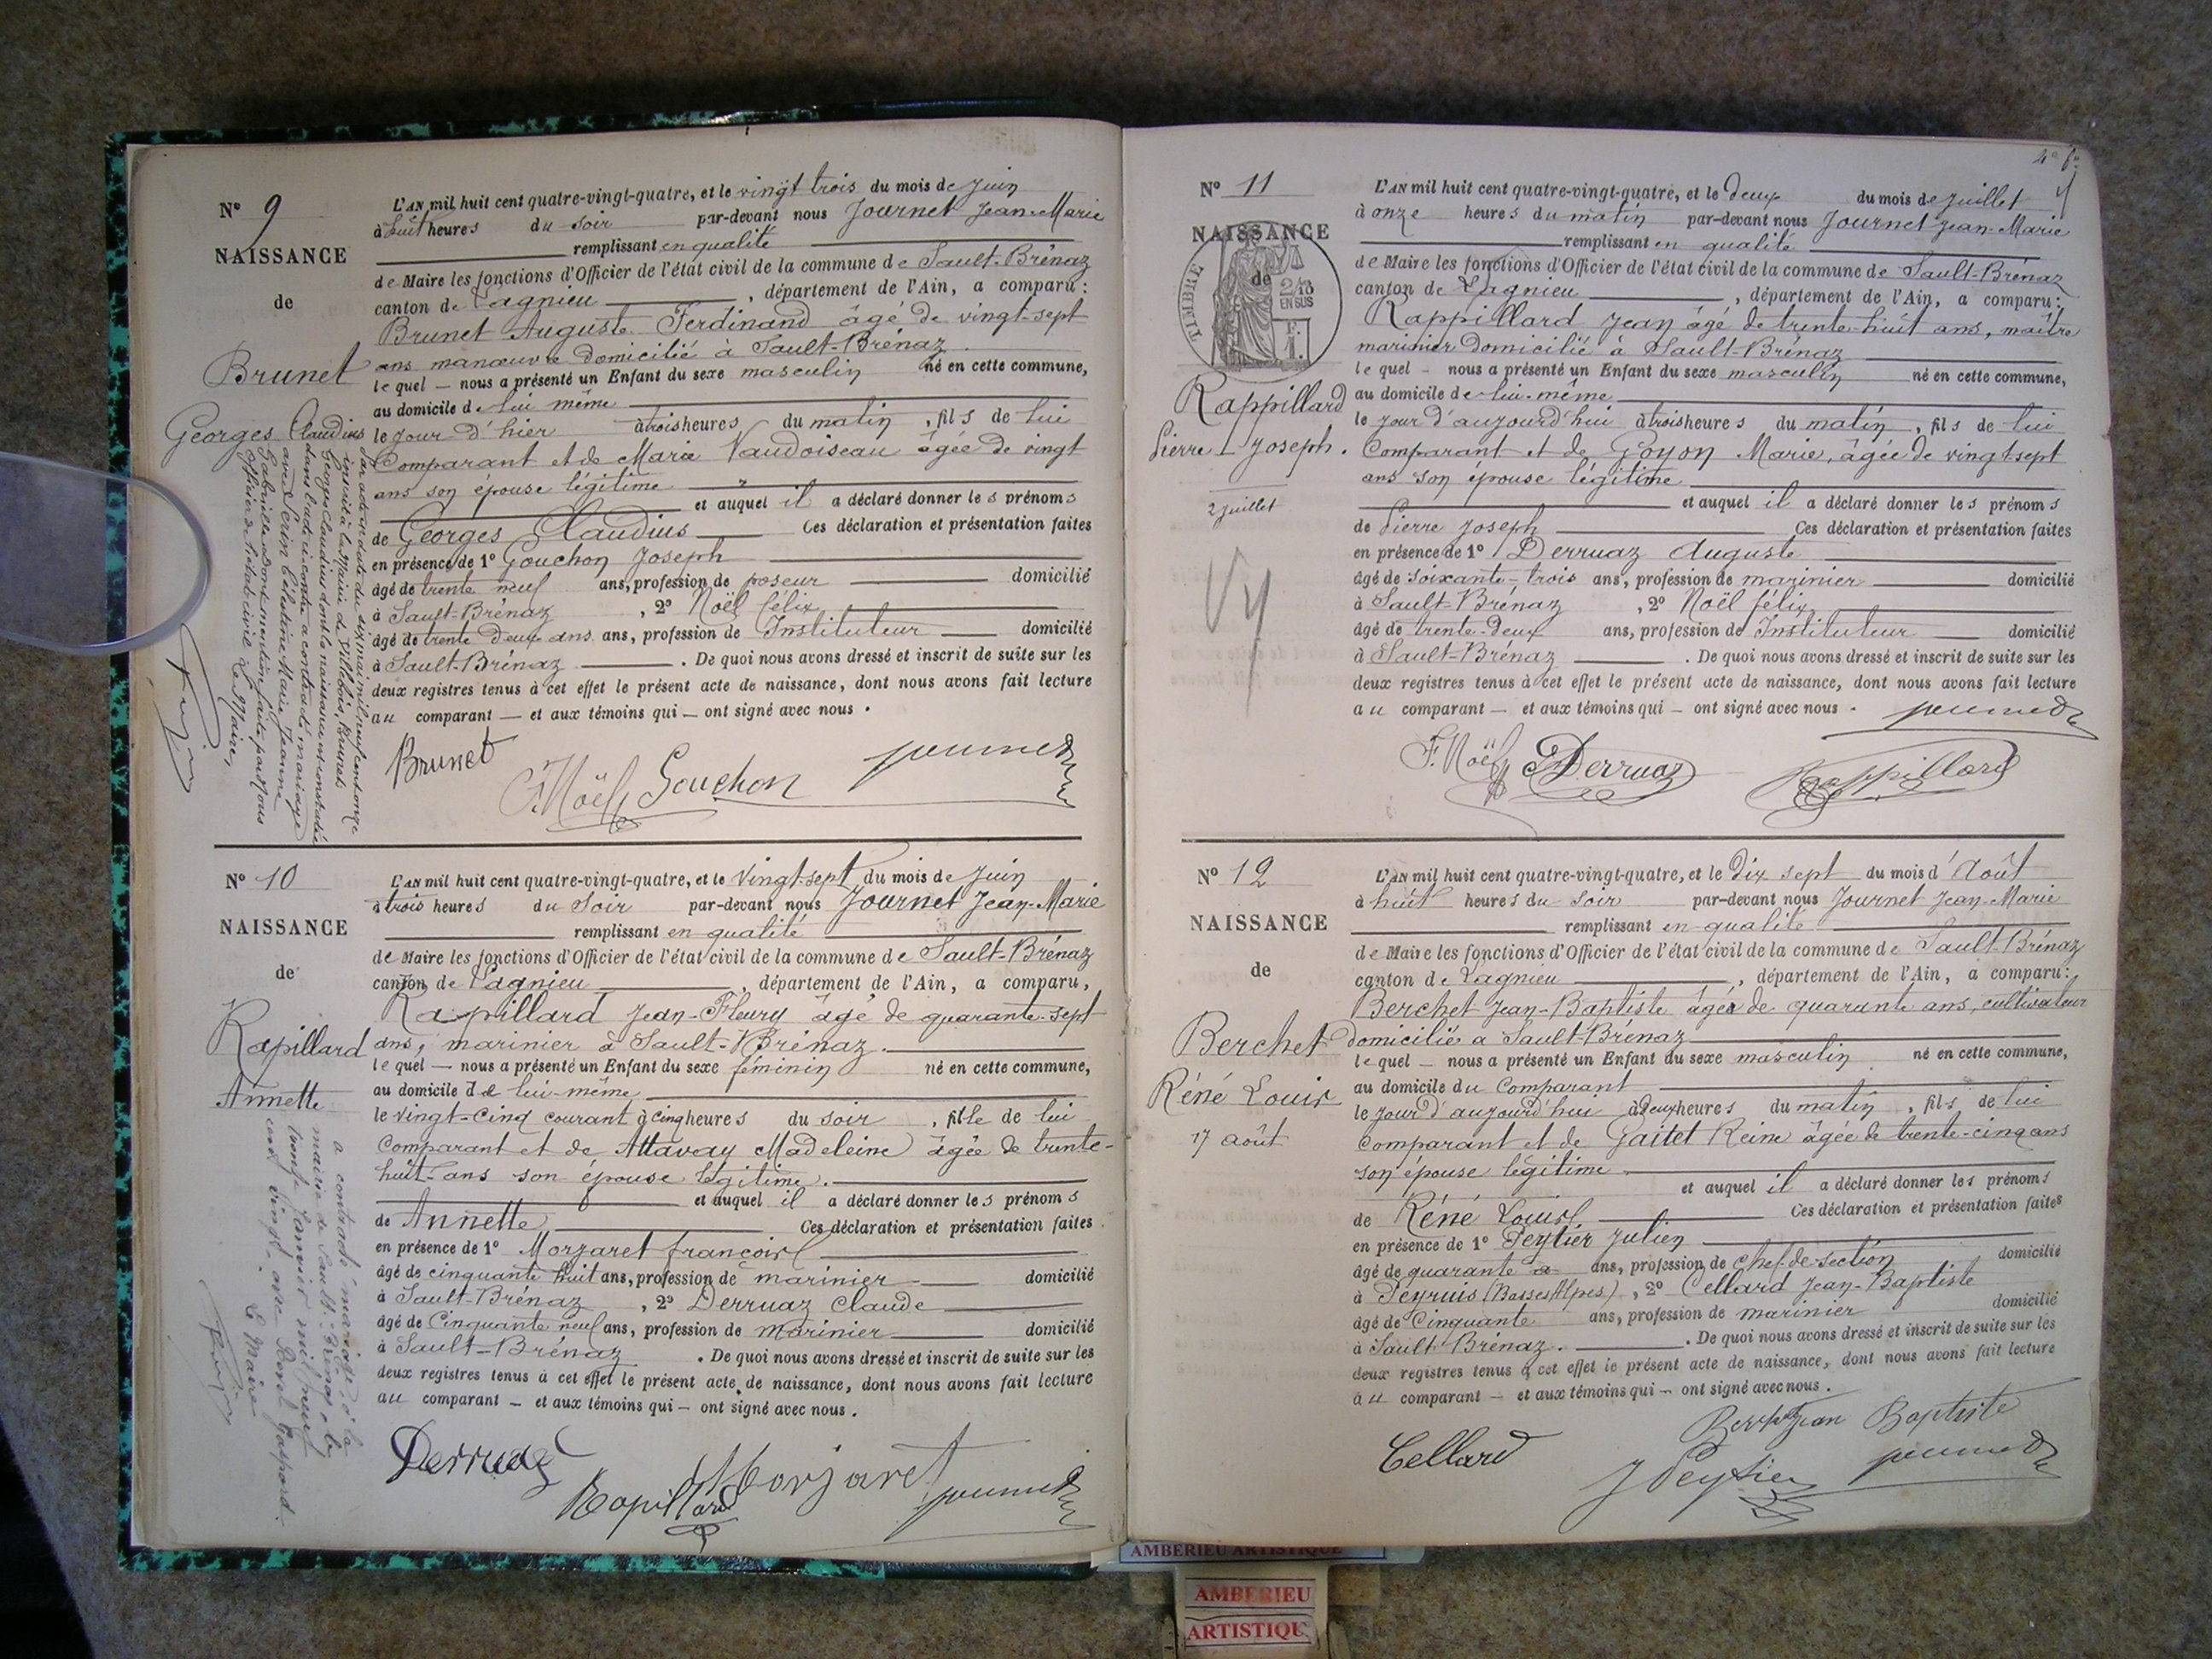 N° 9
NAISSANCE
de
Brunet
Georges Claudius
L'AN mil huit cent quatre-vingt-quatre, et le vingt trois du mois de juin
à huit heures du soir par-devant nous Journet Jean-Marie
remplissant en qualité
de Maire les fonctions d'Officier de l'état civil de la commune de Sault-Brénaz
canton de Lagnieu, département de l'Ain, a comparu :
Brunet Auguste Ferdinand âgé de vingt-sept
ans manœuvre domicilié à Sault-Brénaz
lequel — nous a présenté un Enfant du sexe masculin né en cette commune,
au domicile de lui même
le jour d'hier à trois heures du matin, fils de lui
Comparant et de Marie Vaudoiseau âgée de vingt
ans son épouse légitime
et auquel il a déclaré donner les prénoms
de Georges Claudius Ces déclaration et présentation faites
en présence de 1° Gouchon Joseph
âgé de trente neuf ans, profession de poseur domicilié
à Sault-Brénaz, 2° Noël félix
âgé de trente deux ans ans, profession de Instituteur domicilié
à Sault-Brénaz. De quoi nous avons dressé et inscrit de suite sur les
deux registres tenus à cet effet le présent acte de naissance, dont nous avons fait lecture
au comparant — et aux témoins qui — ont signé avec nous.
Brunet
F. Noël Gouchon Journet
Par acte en date du six mai mil neuf cent onze
inscrit à la Mairie de Villebois, Brunet
Georges Claudius dont la naissance est constatée
dans l'acte ci-contre a contracté mariage
avec Perrin Célestine Marie Jeanne
Gabrielle dont mention faite par Nous
Officier de l'état civil Le Maire,
N° 10
NAISSANCE
de
Rapillard
Annette
L'AN mil huit cent quatre-vingt-quatre, et le Vingt-sept du mois de Juin
à trois heures du Soir par-devant nous Journet Jean-Marie
remplissant en qualité
de Maire les fonctions d'Officier de l'état civil de la commune de Sault-Brénaz
canton de Lagnieu, département de l'Ain, a comparu,
Rapillard Jean-Fleury âgé de quarante-sept
ans, marinier à Sault-Brénaz.
lequel — nous a présenté un Enfant du sexe féminin né en cette commune,
au domicile de lui-même
le vingt-cinq courant à cinq heures du soir, fille de lui
Comparant et de Attavay Madeleine âgée de trente-
huit-ans son épouse légitime.
et auquel il a déclaré donner les prénoms
de Annette Ces déclaration et présentation faites
en présence de 1° Morgaret françois
âgé de cinquante huit ans, profession de marinier domicilié
à Sault-Brénaz, 2° Derruaz Claude
âgé de Cinquante neuf ans, profession de Marinier domicilié
à Sault-Brénaz. De quoi nous avons dressé et inscrit de suite sur les
deux registres tenus à cet effet le présent acte de naissance, dont nous avons fait lecture
au comparant — et aux témoins qui — ont signé avec nous.
Derruaz
Rapillard Morgaret Journet
a contracté mariage à la
mairie de Sault-Brénaz, le
onze Janvier mil neuf
cent vingt, avec Gaspard.
Le Maire
N° 11
NAISSANCE
de
TIMBRE
2/10
EN SUS
F.
1.
Rappillard
Pierre-Joseph.
2 juillet
L'AN mil huit cent quatre-vingt-quatre, et le deux du mois de juillet
à onze heures du matin par-devant nous Journet Jean-Marie
remplissant en qualité
de Maire les fonctions d'Officier de l'état civil de la commune de Sault-Brénaz
canton de Lagnieu, département de l'Ain, a comparu :
Rappillard Jean âgé de trente-huit ans, maître
marinier domicilié à Sault-Brénaz
lequel - nous a présenté un Enfant du sexe masculin né en cette commune,
au domicile de lui-même
le jour d'aujourd'hui à trois heures du matin, fils de lui
Comparant et de Goyon Marie, âgée de vingt sept
ans son épouse légitime
et auquel il a déclaré donner les prénoms
de Pierre Joseph Ces déclaration et présentation faites
en présence de 1° Derruaz Auguste
âgé de soixante-trois ans, profession de marinier domicilié
à Sault-Brénaz, 2° Noël félix
âgé de trente-deux ans, profession de Instituteur domicilié
à Sault-Brénaz. De quoi nous avons dressé et inscrit de suite sur les
deux registres tenus à cet effet le présent acte de naissance, dont nous avons fait lecture
au comparant — et aux témoins qui — ont signé avec nous.
Journet
F. Noël Derruaz Rappillard
N° 12
NAISSANCE
de
Berchet
Réné Louis
17 août
L'AN mil huit cent quatre-vingt-quatre, et le Dix sept du mois d'Août
à huit heures du Soir par-devant nous Journet Jean-Marie
remplissant en qualité
de Maire les fonctions d'Officier de l'état civil de la commune de Sault-Brénaz
canton de Lagnieu, département de l'Ain, a comparu :
Berchet Jean-Baptiste âgé de quarante ans, cultivateur
domicilié à Sault-Brénaz
lequel — nous a présenté un Enfant du sexe masculin né en cette commune,
au domicile du Comparant
le jour d'aujourd'hui à deux heures du matin, fils de lui
Comparant et de Gaitet Reine âgée de trente-cinq ans
son épouse légitime
et auquel il a déclaré donner les prénoms
de Réné Louis Ces déclaration et présentation faites
en présence de 1° Peytier Julien
âgé de quarante ans, profession de chef-de-section domicilié
à Peyruis (Basses Alpes), 2° Cellard Jean-Baptiste
âgé de Cinquante ans, profession de marinier domicilié
à Sault-Brénaz. De quoi nous avons dressé et inscrit de suite sur les
deux registres tenus à cet effet le présent acte de naissance, dont nous avons fait lecture
au comparant — et aux témoins qui — ont signé avec nous.
Berchet Jean Baptiste
Cellard J Peytier Journet
AMBERIEU ARTISTIQUE
AMBERIEU
ARTISTIQU